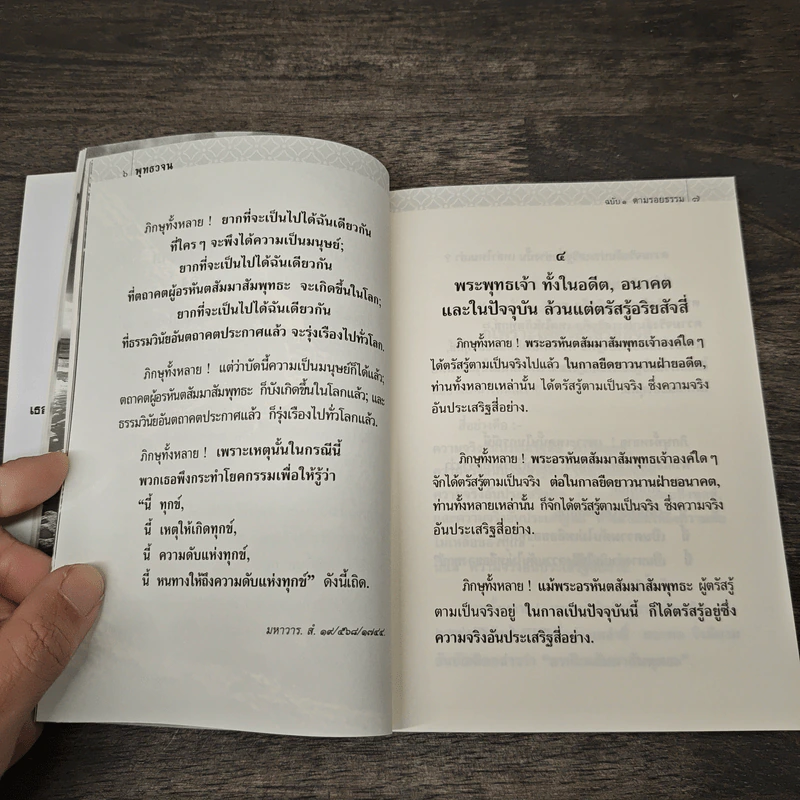 ๖ พุทธวจน
ภิกษุทั้งหลาย ! ยากที่จะเป็นไปได้ฉันเดียวกัน
ที่ใครๆ จะพึงได้ความเป็นมนุษย์;
ยากที่จะเป็นไปได้ฉันเดียวกัน
ที่ตถาคตผู้อรหันตสัมมาสัมพุทธะ จะเกิดขึ้นในโลก;
ยากที่จะเป็นไปได้ฉันเดียวกัน
ที่ธรรมวินัยอันตถาคตประกาศแล้ว จะรุ่งเรืองไปทั่วโลก.
ภิกษุทั้งหลาย ! แต่ว่าบัดนี้ความเป็นมนุษย์ก็ได้แล้ว;
ตถาคตผู้อรหันตสัมมาสัมพุทธะ ก็บังเกิดขึ้นในโลกแล้ว; และ
ธรรมวินัยอันตถาคตประกาศแล้ว ก็รุ่งเรืองไปทั่วโลกแล้ว.
ภิกษุทั้งหลาย ! เพราะเหตุนั้นในกรณีนี้
พวกเธอพึงกระทำโยคกรรมเพื่อให้รู้ว่า
“นี้ ทุกข์,
นี้ เหตุให้เกิดทุกข์,
นี้ ความดับแห่งทุกข์,
นี้ หนทางให้ถึงความดับแห่งทุกข์” ดังนี้เถิด.
มหาวาร. สํ. ๑๙/๕๖๘/๑๗๔๔.
ฉบับ ๑ ตามรอยธรรม ๗
๔
พระพุทธเจ้า ทั้งในอดีต, อนาคต
และในปัจจุบัน ล้วนแต่ตรัสรู้อริยสัจสี่
ภิกษุทั้งหลาย ! พระอรหันตสัมมาสัมพุทธเจ้าองค์ใด ๆ
ได้ตรัสรู้ตามเป็นจริงไปแล้ว ในกาลยืดยาวนานฝ่ายอดีต,
ท่านทั้งหลายเหล่านั้น ได้ตรัสรู้ตามเป็นจริง ซึ่งความจริง
อันประเสริฐสี่อย่าง.
ภิกษุทั้งหลาย ! พระอรหันตสัมมาสัมพุทธเจ้าองค์ใด ๆ
จักได้ตรัสรู้ตามเป็นจริง ต่อในกาลยืดยาวนานฝ่ายอนาคต,
ท่านทั้งหลายเหล่านั้น ก็จักได้ตรัสรู้ตามเป็นจริง ซึ่งความจริง
อันประเสริฐสี่อย่าง.
ภิกษุทั้งหลาย ! แม้พระอรหันตสัมมาสัมพุทธะ ผู้ตรัสรู้
ตามเป็นจริงอยู่ ในกาลเป็นปัจจุบันนี้ ก็ได้ตรัสรู้อยู่ซึ่ง
ความจริงอันประเสริฐสี่อย่าง.